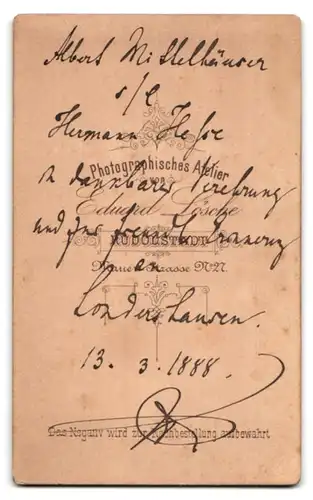 Albert Mittelhäuser
s/l
Hermann Hesse
Photographisches Atelier
von
in dankbarer Verehrung
Eduard Lösche
und zur freundl. Erinnerung
RUDOLSTADT
Strasse No 27.
an
Sondershausen.
13. 3. 1888.
Das Negativ wird zur Nachbestellung aufbewahrt